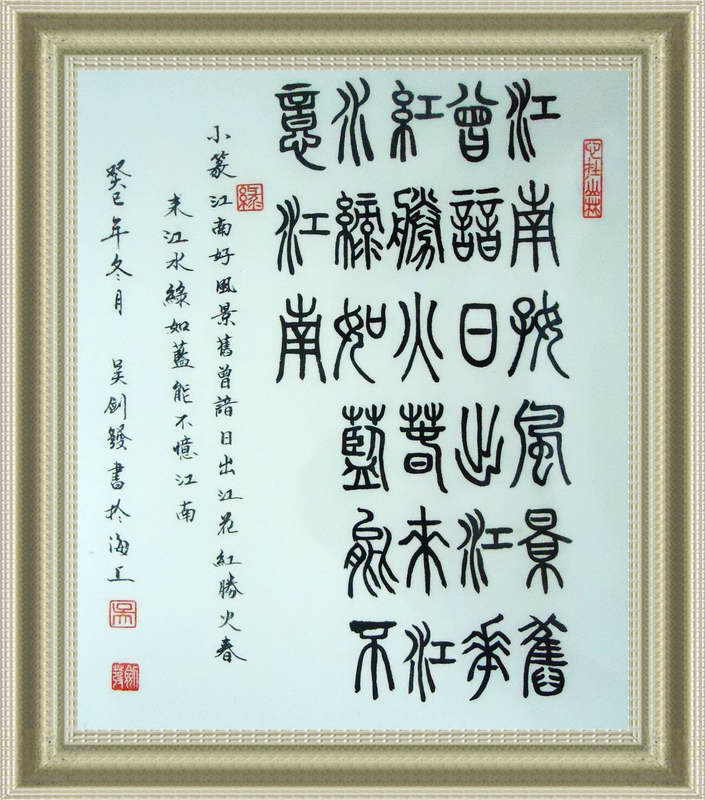 江南好風景舊
曾諳日出江花
紅勝火春來江
水綠如藍能不
意江南
小篆江南好風景舊曾諳日出江花紅勝火春
來江水綠如藍能不憶江南
癸巳年冬月 吴劍發書於海上
緣
吴
劍發